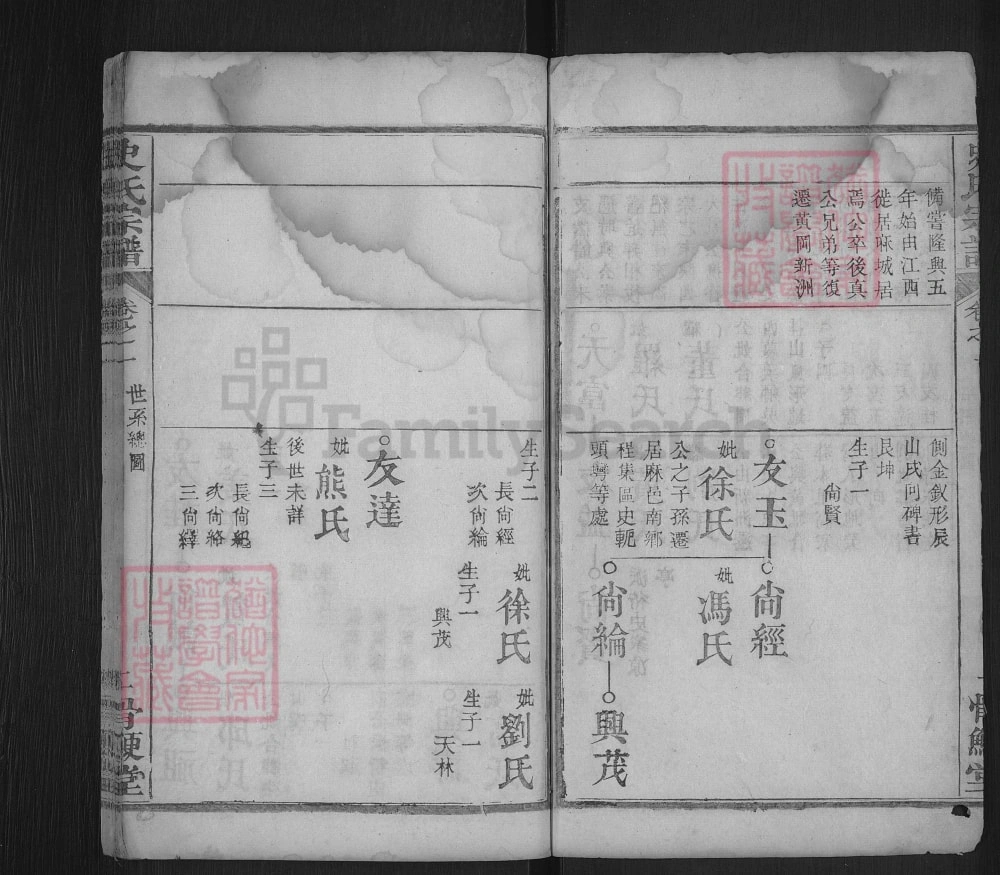 備嘗隆興五
年始由江西
徙居麻城居
焉公卒後真
公兄弟等復
遷黃岡新洲
側金釵形辰
山戌向碑書
艮坤
生子一
尙賢
友玉
妣徐氏
公之子孫遷
居麻邑南鄉
程集區史軛
頭塆等處
尙經
妣馮氏
尙綸
興茂
生子二
長尙經
次尙綸
妣徐氏
生子一
興茂
妣劉氏
生子一
天林
友達
妣熊氏
後世未詳
生子三
長尙紀
次尙絡
三尙繹
史氏宗譜
卷之一
世系總圖
骨鯁堂
FamilySearch